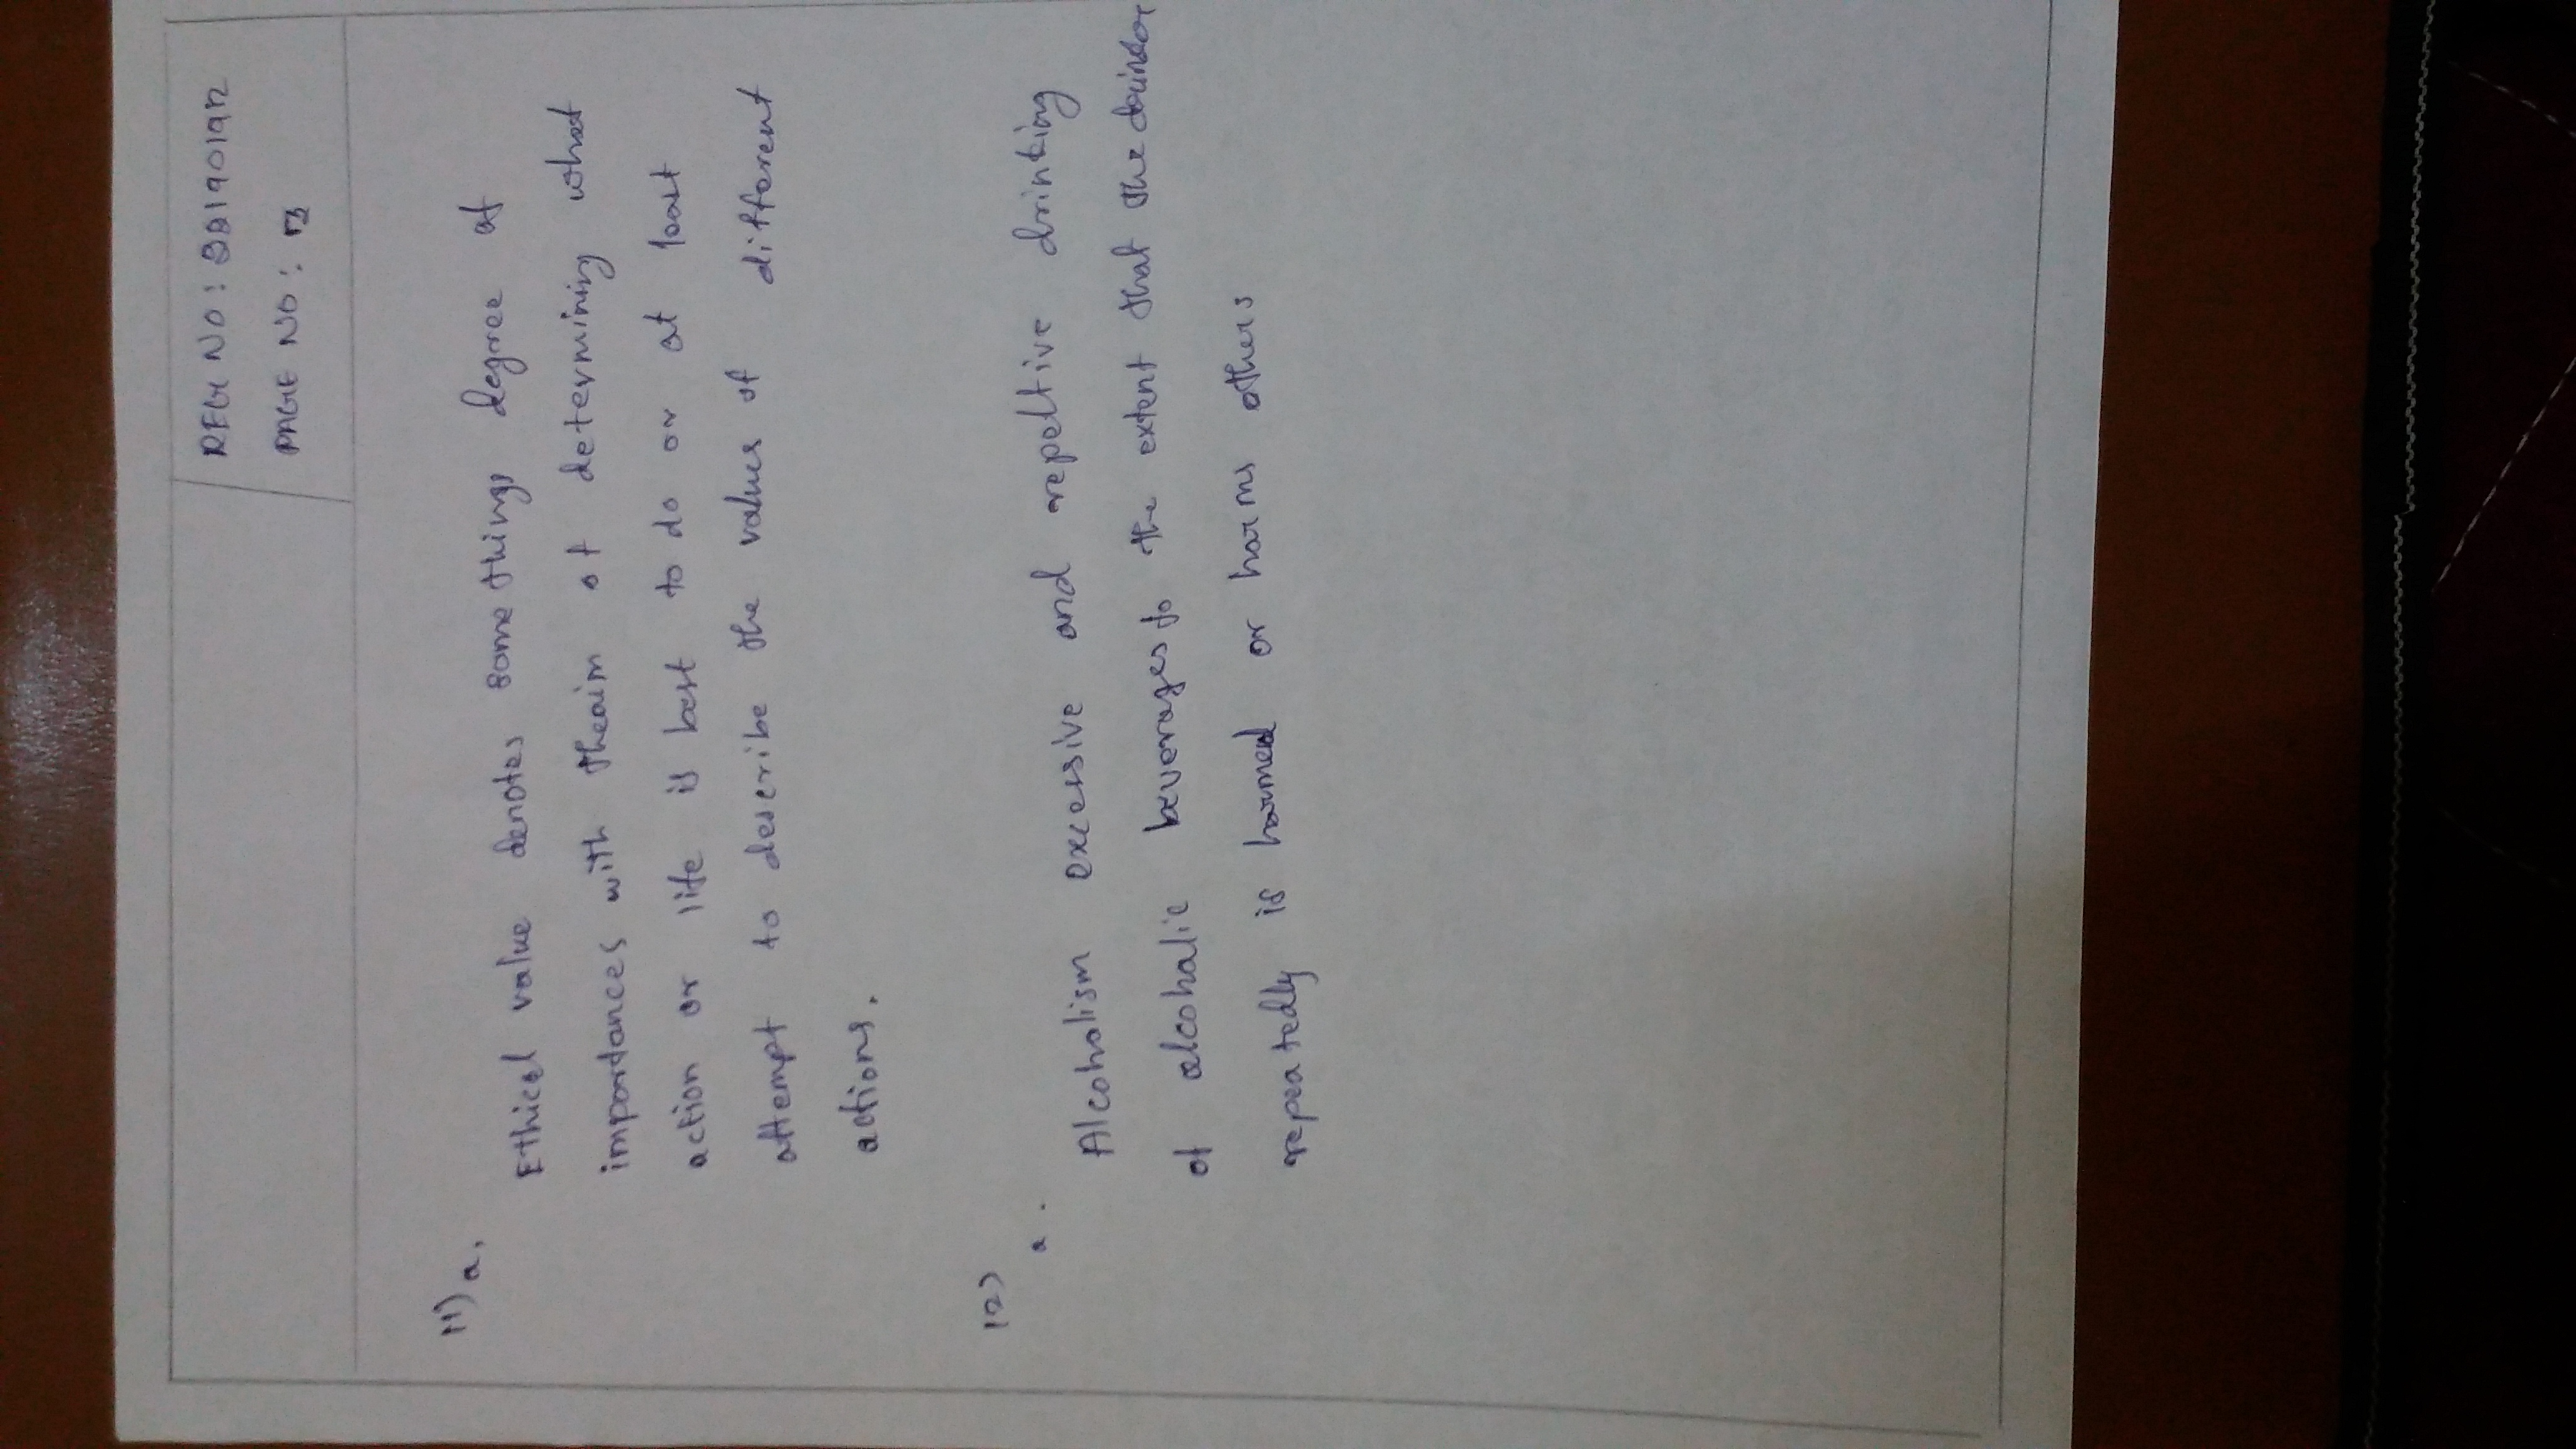 REG NO:
PAGE NO:
11) a,
Ethical value denotes some things degree of
importances with theaim of determining what
action or life is best to do or at last
attempt to describe the values of different
actions.
12)
a.
Alcohalism excessive and repeltive drinking
of alcohalic beverages to the extent that the drinkor
repeatedly is harmed or harms others